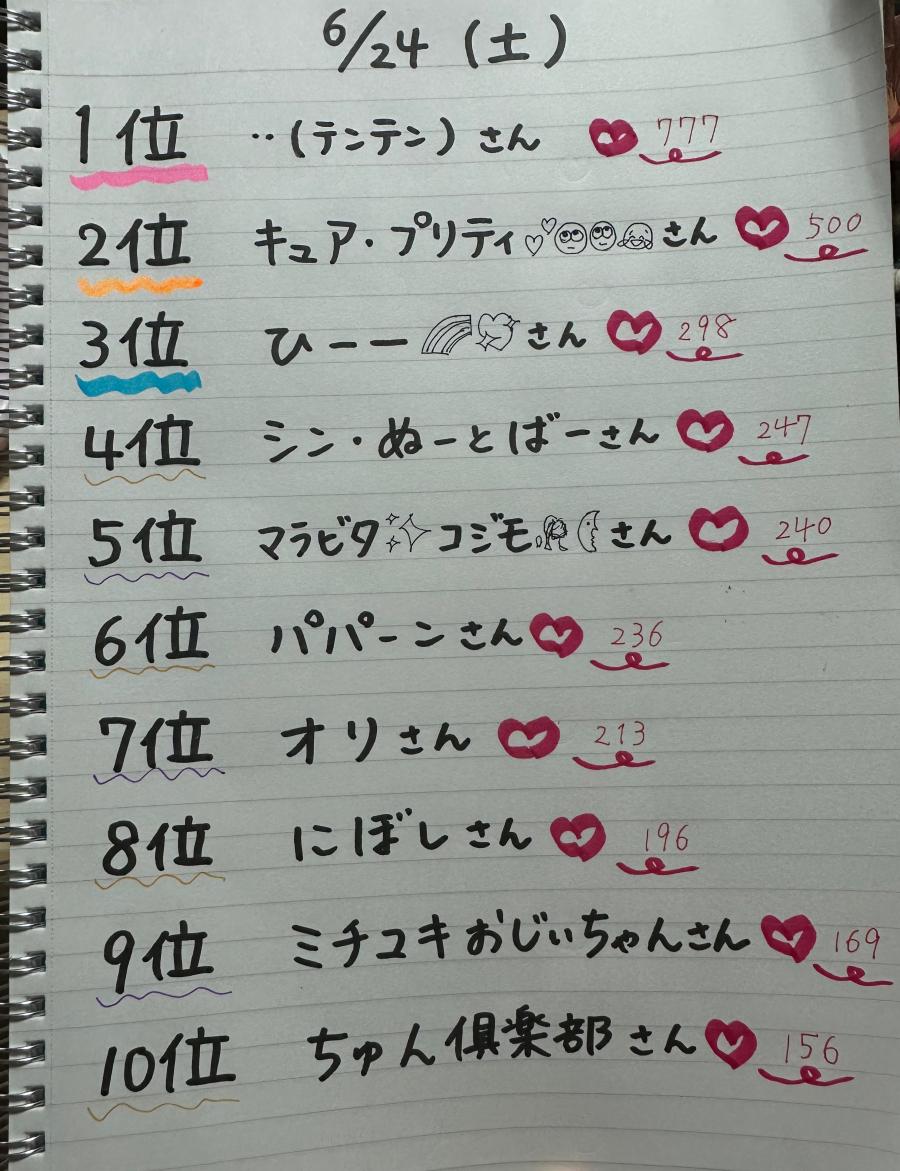 6/24 (土)
1位 ‥(テンテン)さん 777
2位 キュア・プリティ💕🙄🙄😭さん 500
3位 ひーー🌈💘さん 298
4位 シン・ぬーとばーさん 247
5位 マラビタ✨コジモ🌛さん 240
6位 パパーンさん 236
7位 オリさん 213
8位 にぼしさん 196
9位 ミチユキおじぃちゃんさん 169
10位 ちゅん倶楽部さん 156